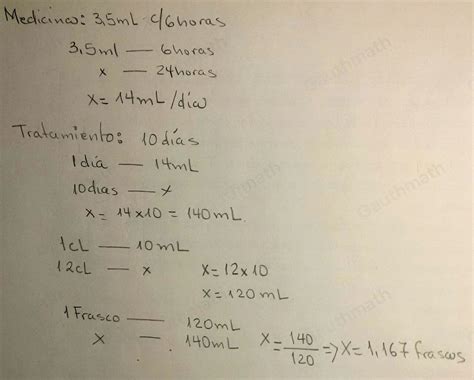 Medicina: 3,5mL c/6horas
3,5ml — 6horas
x — 24horas
x = 14mL/día
Tratamiento: 10 días
1día — 14mL
10dias — x
x = 14x10 = 140mL
1cL — 10mL
12cL — x x = 12x10
x = 120mL
1 Frasco — 120mL
x — 140mL x = 140/120 => x = 1,167 frascos
Gauthmath
Gauthmath
Gauthmath